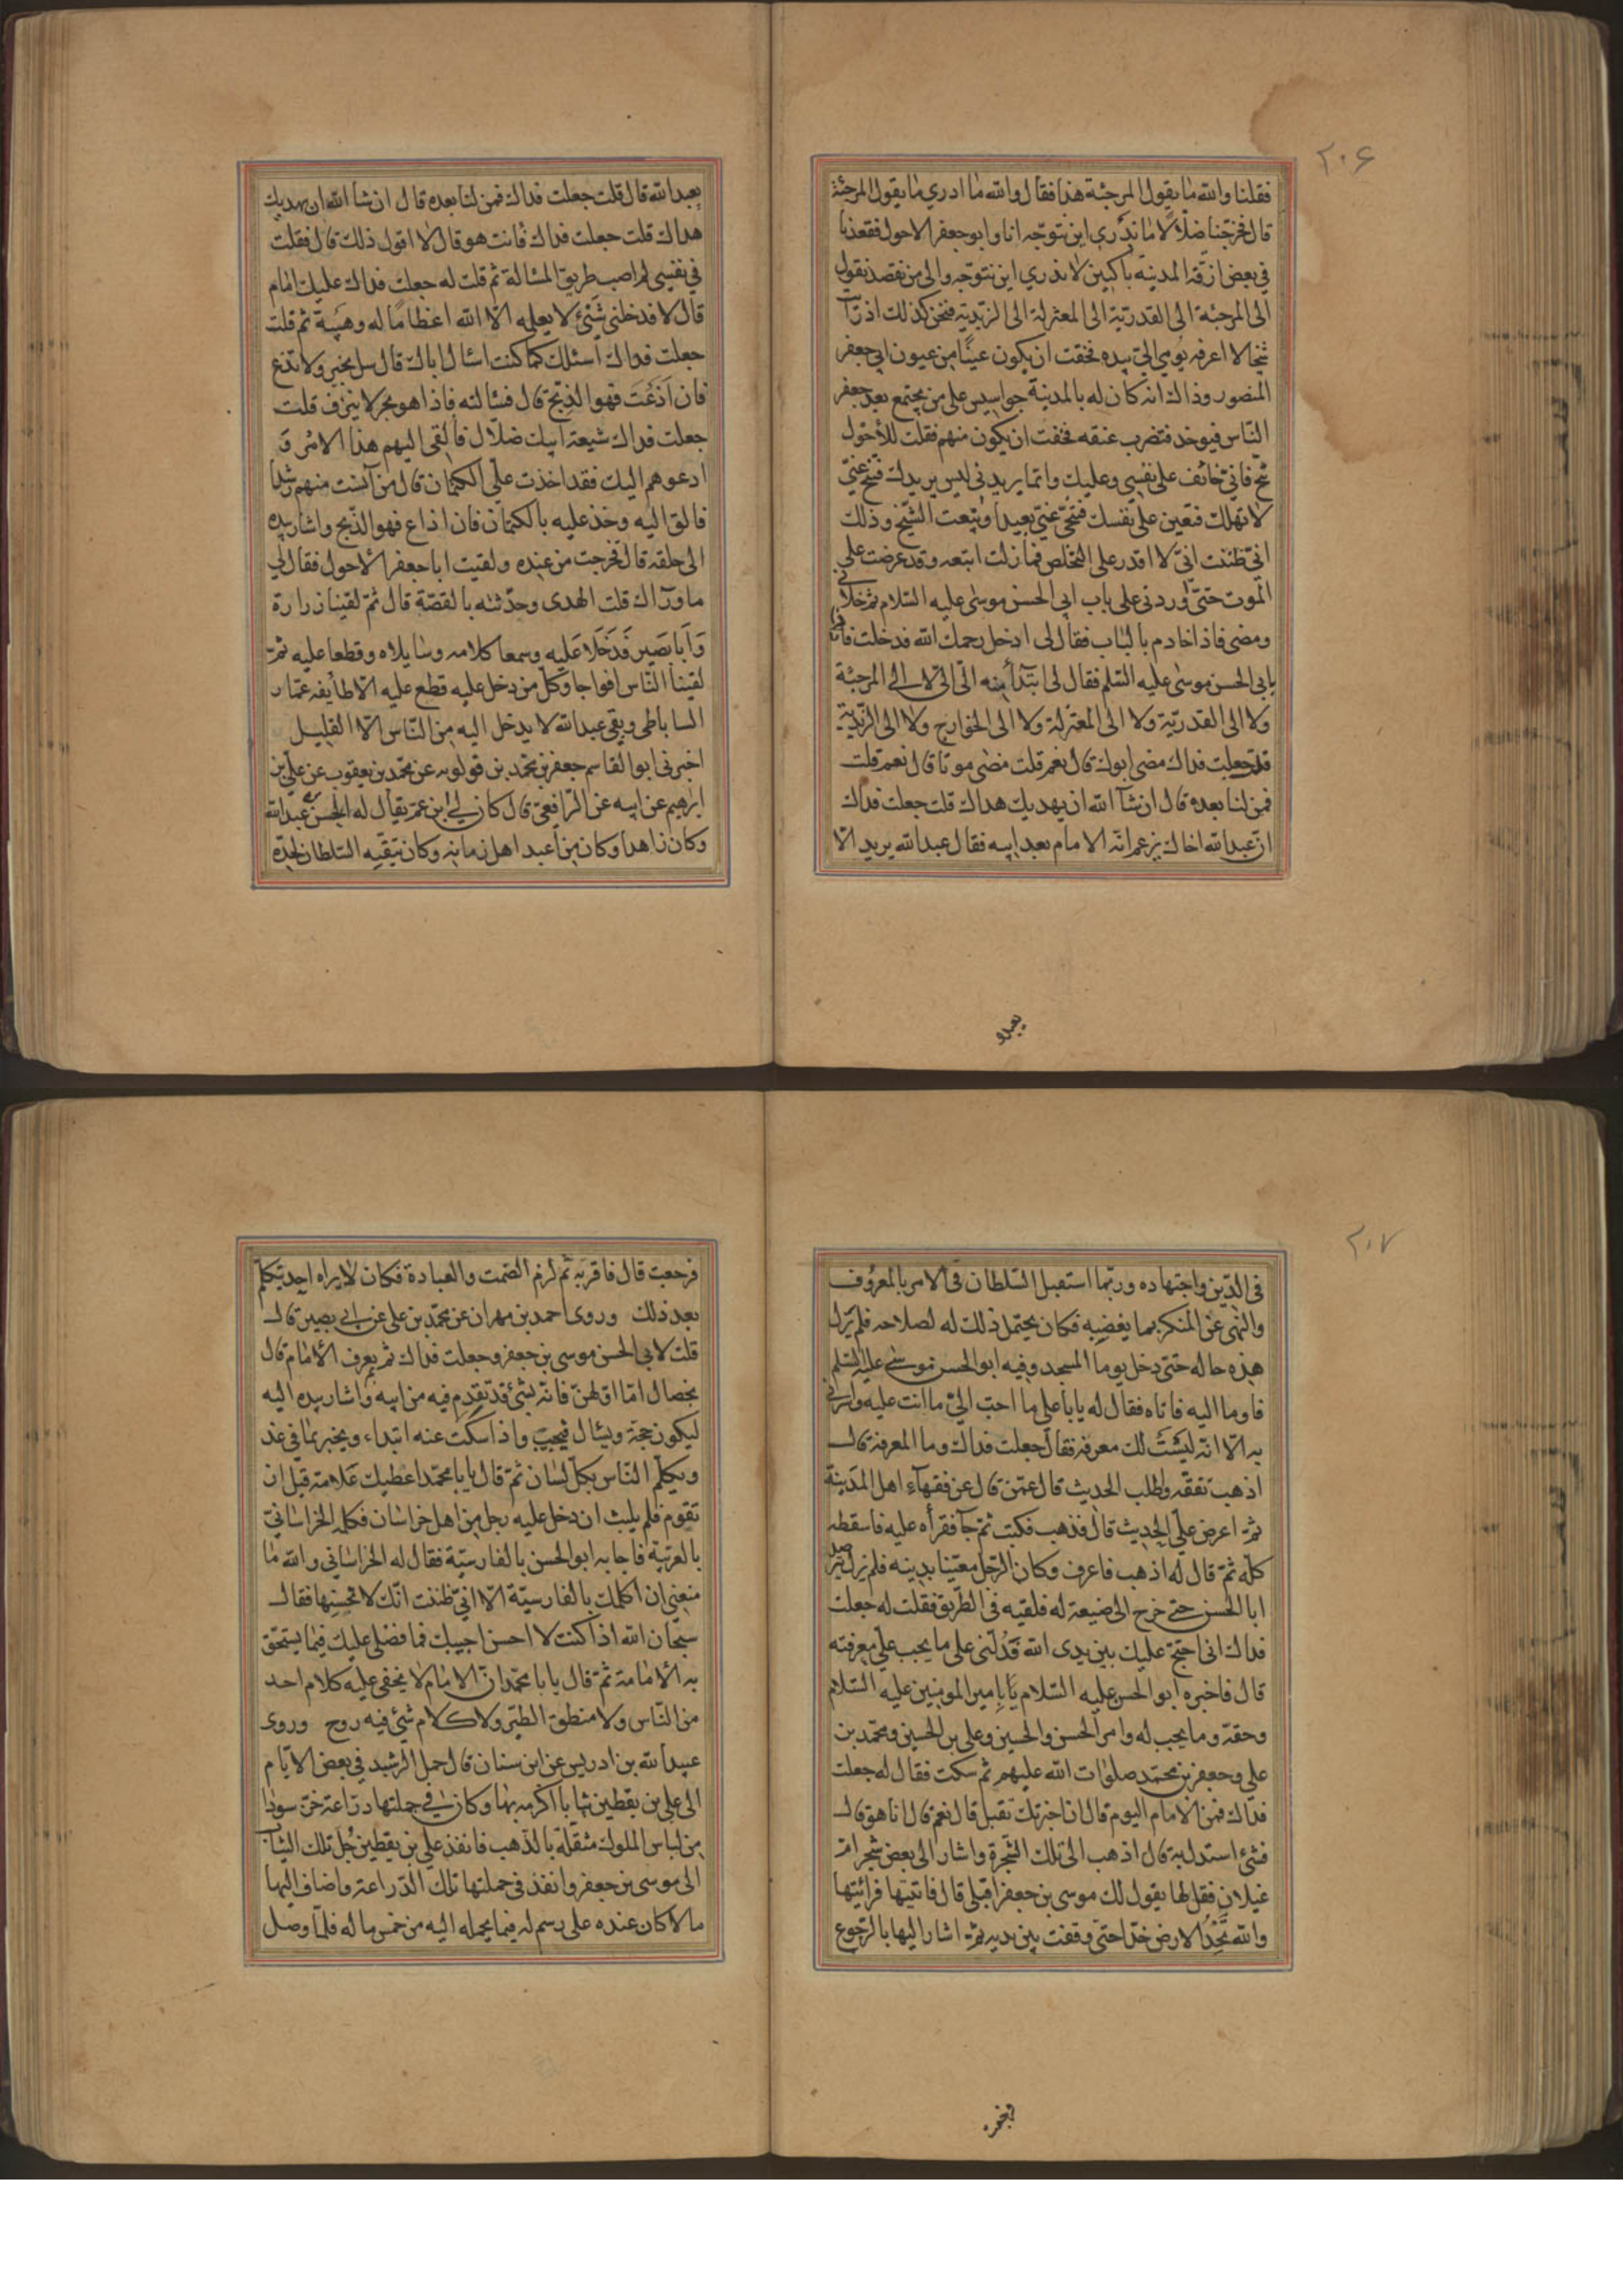 ٢٠۶
فقلنا والله ما يقول المرجئة هذا فقال والله ما ادري ما يقول المرجئة
قال فخرجنا ضلّالا ما ندري اين نتوجه انا وابو جعفر الاحول فقعدنا
في بعض ازقة المدينة باكيين لا ندري اين نتوجه والى من نقصد نقول
الى المرجئة الى القدرية الى المعتزلة الى الزيدية فنحن كذلك اذ رأيت
شيخا لا اعرفه يومي الىّ بيده فخفت ان يكون عينًا من عيون ابي جعفر
المنصور وذاك انه كان له بالمدينة جواسيس على من يجتمع بعد جعفر
النّاس فيوخذ فتضرب عنقه فخفت ان يكون منهم فقلت للأحول
تنحّ فانّي خائف على نفسي وعليك وانّما يريدني ليس يريدك فتنحّ عنّي
لا تهلك فتعين على نفسك فتنحّى عنّي بعيدا وتبعت الشّيخ وذلك
انّي ظننت انّي لا اقدر على التخلّص فما زلت اتبعه وقد عرضت على
الموت حتّى وردني على باب ابي الحسن موسى عليه السّلام ثم خلّاني
ومضى فاذا خادم بالباب فقال لي ادخل رحمك الله فدخلت فاذا
بابي الحسن موسى عليه السّلم فقال لي ابتدأ منه الىّ الىّ لا الى المرجئة
ولا الى القدريّة ولا الى المعتزلة ولا الى الخوارج ولا الى الزيدية
قلت جعلت فداك مضى ابوك قال نعم قلت مضى موتا قال نعم قلت
فمن لنا بعده قال ان شآ الله ان يهديك هداك قلت جعلت فداك
انّ عبد الله اخاك يزعم انّه الامام بعد ابيه فقال عبد الله يريد الّا
يعبد و
يعبد الله قال قلت جعلت فداك فمن لنا بعده قال ان شآ الله ان يهديك
هداك قلت جعلت فداك فانت هو قال لا اقول ذلك قال فقلت
في نفسي لم اصب طريق المسالة ثم قلت له جعلت فداك عليك امام
قال لا فدخلني شئ لا يعلمه الّا الله اعظامًا له وهيبة ثم قلت
جعلت فداك اسئلك كما كنت اسئال اباك قال سل تخبر ولا تذع
فان اذعت فهو الذبح قال فسالته فاذا هو بحر لا ينزف قلت
جعلت فداك شيعة ابيك ضلّال فالقى اليهم هذا الامر و
ادعوهم اليك فقد اخذت علىّ الكتمان قال من آنست منهم رشدا
فالق اليه وخذ عليه بالكتمان فان اذاع فهو الذّبح واشار بيده
الى حلقه قال فخرجت من عنده ولقيت ابا جعفر الأحول فقال لي
ما ورآك قلت الهدى وحدّثته بالقصّة قال ثمّ لقينا زرارة
وابا بصير فدخلا عليه وسمعا كلامه وسايلاه وقطعا عليه ثمّ
لقينا النّاس افواجا وكلّ من دخل عليه قطع عليه الّا طايفه عمّار
الساباطي وبقي عبد الله لا يدخل اليه من النّاس الّا القليل
اخبرني ابو القاسم جعفر بن محمّد بن قولويه عن محمّد بن يعقوب عن علي بن
ابرهيم عن ابيه عن الرّافعي قال كان لي ابن عم يقال له الحسن بن عبد الله
وكان زاهدا وكان من اعبد اهل زمانه وكان يتقيه السّلطان لجده
٢٠٧
في الدّين واجتهاده وربّما استقبل السّلطان في الامر بالمعروف
والنّهى عن المنكر بما يغضبه فكان يحتمل ذلك له لصلاحه فلم يزل
هذه حاله حتّى دخل يوما المسجد وفيه ابو الحسن موسى عليه السّلم
فاوما اليه فاتاه فقال له يابا علي ما احبّ الىّ ما انت عليه واسرّني
به الّا انّه ليست لك معرفة فقال جعلت فداك وما المعرفة قال
اذهب تفقّه واطلب الحديث قال عمّن قال عن فقهآء اهل المدينة
ثمّ اعرض علىّ الحديث قال فذهب فكتب ثمّ جآ فقرأه عليه فاسقطه
كلّه ثمّ قال له اذهب فاعرف وكان الرّجل معتنيا بدينه فلم يزل يترصد
ابا الحسن حتّى خرج الى ضيعة له فلقيه في الطّريق فقلت له جعلت
فداك انى احتجّ عليك بين يدى الله فدلّنى على ما يجب علىّ معرفته
قال فاخبره ابو الحسن عليه السّلام بامير المومنين عليه السّلام
وحقّه وما يجب له وامر الحسن والحسين وعلي بن الحسين ومحمّد بن
علي وجعفر بن محمّد صلوات الله عليهم ثم سكت فقال له جعلت
فداك فمن الامام اليوم قال ان اخبرتك تقبل قال نعم قال انا هو قال
فشئ استدل به قال اذهب الى تلك الشّجرة واشار الى بعض شجرات
غيلان فقل لها يقول لك موسى بن جعفر اقبلي قال فاتيتها فرائيتها
والله تخدّ الارض خدّا حتّى وقفت بين يديه ثمّ اشار اليها بالرّجوع
فرجعت قال فاقر به ثم لزم الصّمت والعبادة فكان لا يراه احد يتكلّم
بعد ذلك وروى احمد بن مهران عن محمّد بن علي عن ابي بصير قال
قلت لابي الحسن موسى بن جعفر جعلت فداك ثم يعرف الأمام قال
بخصال امّا اوّلهنّ فانّه بشئ قد تقدم فيه من ابيه واشار بيده اليه
ليكون حجة ويسئال فيجيب واذا سكت عنه ابتداء ويخبر بما في غد
ويكلّم النّاس بكلّ لسان ثمّ قال يابا محمّد اعطيك علامة قبل ان
تقوم فلم يلبث ان دخل عليه رجل من اهل خراسان فكلمه الخراسانيّ
بالعربيّة فاجابه ابو الحسن بالفارسيّة فقال له الخراساني والله ما
منعني ان اكلمك بالفارسيّة الّا انّي ظننت انّك لا تحسنها فقال
سبحان الله اذا كنت لا احسن اجيبك فما فضلى عليك فيما يستحق
به الأمامة ثمّ قال يابا محمّد انّ الامام لا يخفى عليه كلام احد
من النّاس ولا منطق الطّير ولا كلام شئ فيه روح وروى
عبد الله بن ادريس عن ابن سنان قال حمل الرّشيد في بعض الايّام
الى علي بن يقطين ثيابا اكرمه بها وكان في جملتها درّاعة خزّ سودا
من لباس الملوك مثقلة بالذّهب فانفذ علي بن يقطين جلّ تلك الثياب
الى موسى بن جعفر وانفذ في جملتها تلك الدّراعة واضاف اليها
مالا كان عنده على رسم له فيما يحمله اليه من خمس ماله فلمّا وصل